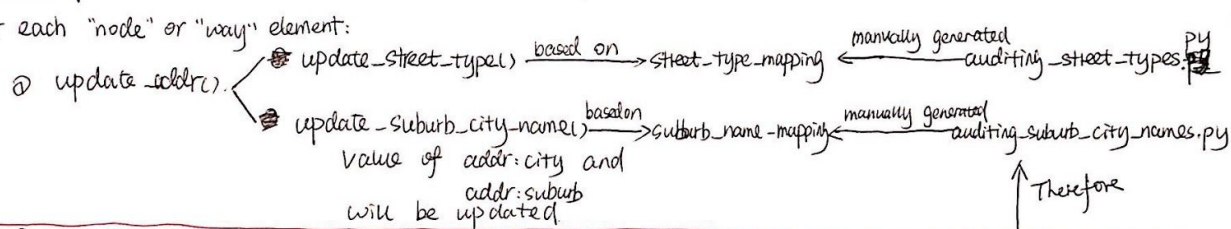 each "node" or "way" element:
① update_addr().
update_street_type() based on street_type_mapping manually generated auditing_street_types.py
update_suburb_city_name() based on suburb_name_mapping manually generated auditing_suburb_city_names.py
value of addr:city and
addr:suburb
will be updated
Therefore